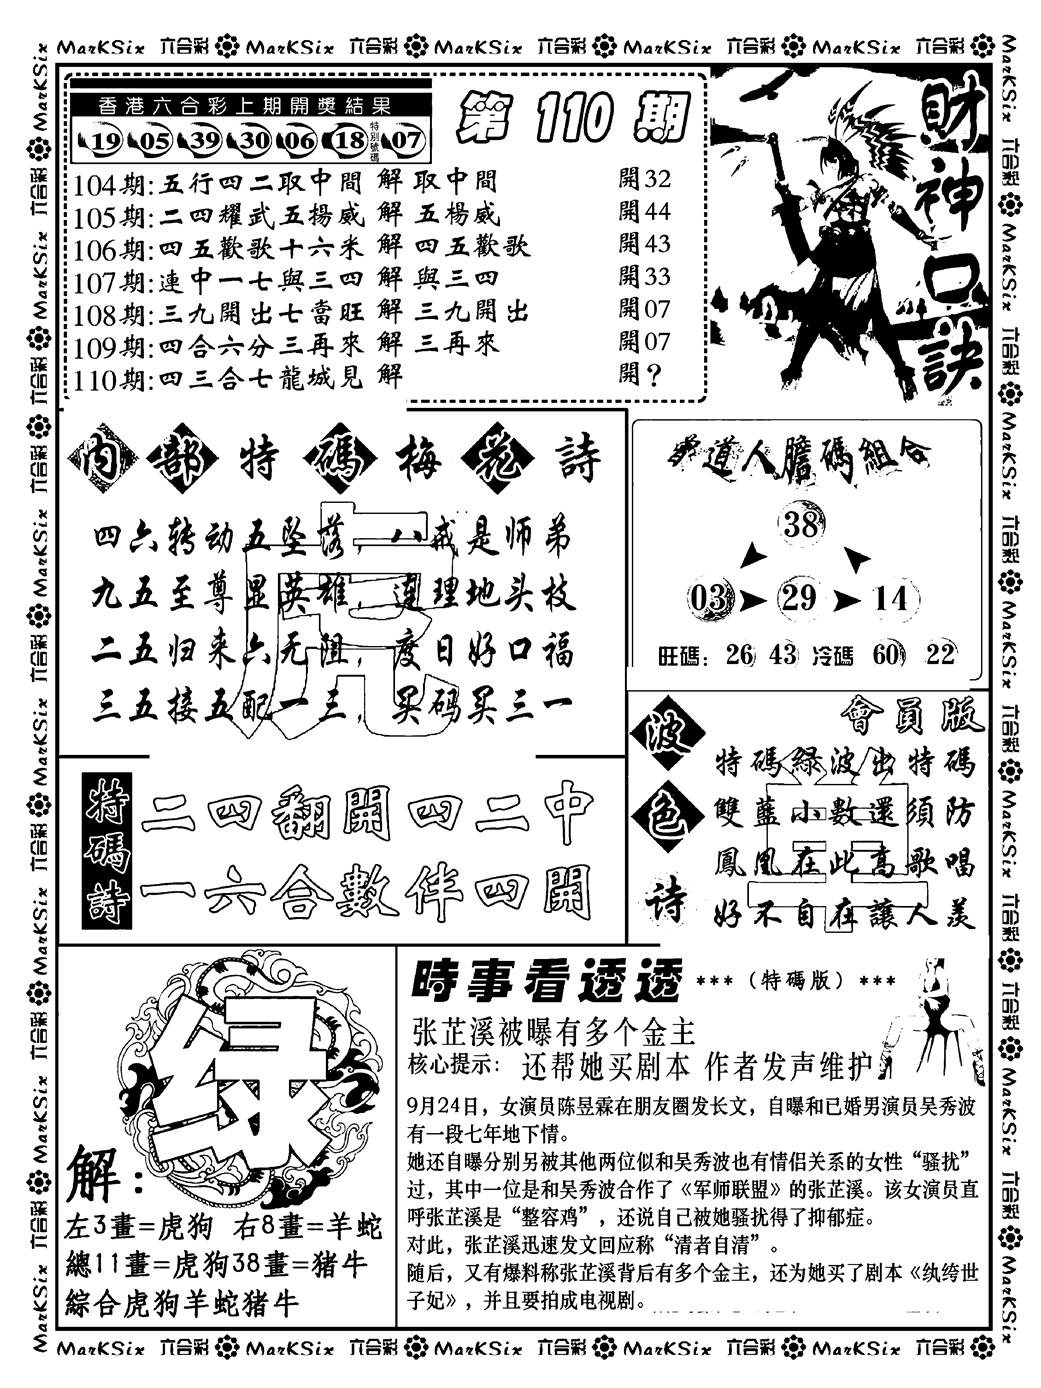 MarKSix 六合彩 MarKSix 六合彩 MarKSix 六合彩 MarKSix 六合彩 MarKSix 六合彩
香港六合彩上期開獎結果
19 05 39 30 06 18 特別號碼 07
第 110 期
104期:五行四二取中間 解 取中間 開32
105期:二四耀武五揚威 解 五楊威 開44
106期:四五歡歌十六米 解 四五歡歌 開43
107期:連中一七與三四 解 與三四 開33
108期:三九開出七當旺 解 三九開出 開07
109期:四合六分三再來 解 三再來 開07
110期:四三合七龍城見 解 開?
財神口訣
內部特碼梅花詩
四六转动五坠落,八戒是师弟
九五至尊显英雄,連理地头枝
二五归来六无阻,度日好口福
三五接五配一三,买码买三一
虎
道人膽碼組合
38
03 29 14
旺碼: 26 43 冷碼 60 22
特碼詩
二四翻開四二中
一六合數伴四開
波色诗
會員版
特碼綠波出特碼
雙藍小數還須防
鳳凰在此高歌唱
好不自在讓人羨
绿
解:
左3畫=虎狗 右8畫=羊蛇
總11畫=虎狗38畫=猪牛
綜合虎狗羊蛇猪牛
時事看透透 ***(特碼版)***
张芷溪被曝有多个金主
核心提示: 还帮她买剧本 作者发声维护
9月24日，女演员陈昱霖在朋友圈发长文，自曝和已婚男演员吴秀波
有一段七年地下情。
她还自曝分别另被其他两位似和吴秀波也有情侣关系的女性“骚扰”
过，其中一位是和吴秀波合作了《军师联盟》的张芷溪。该女演员直
呼张芷溪是“整容鸡”，还说自己被她骚扰得了抑郁症。
对此，张芷溪迅速发文回应称“清者自清”。
随后，又有爆料称张芷溪背后有多个金主，还为她买了剧本《纨绔世
子妃》，并且要拍成电视剧。
MarKSix 六合彩 MarKSix 六合彩 MarKSix 六合彩 MarKSix 六合彩 MarKSix 六合彩